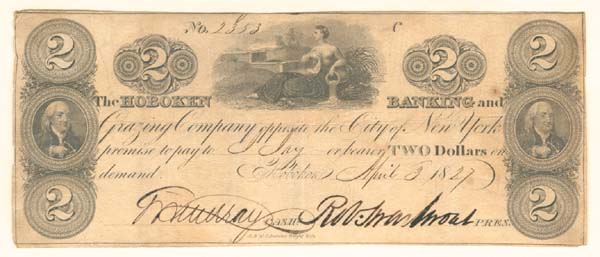 No. 2353 C
2 2 2 2
The HOBOKEN BANKING and
Grazing Company opposite the City of New York
promise to pay to Jay or bearer TWO Dollars on
demand. Hoboken April 3 1827
CASHR. PRES.
2 2